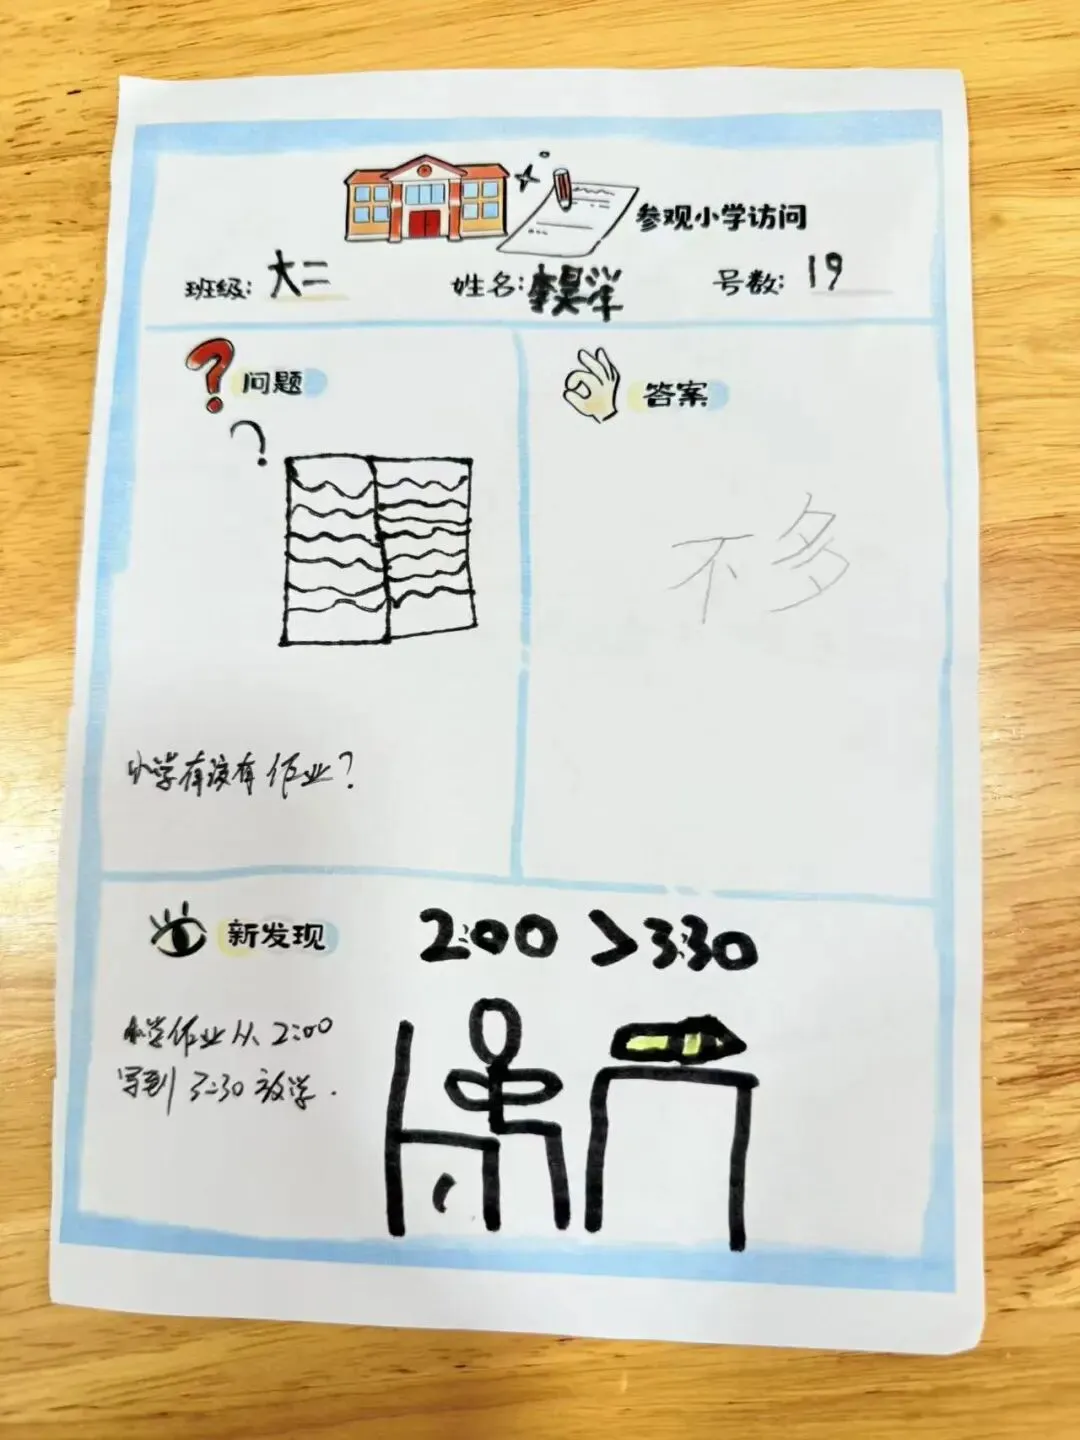 参观小学访问
班级: 大二 姓名: 李昊洋 号数: 19
问题
?
小学有没有作业?
答案
不多
新发现
2:00 > 3:30
小学作业从 2:00
写到 3:30 放学.